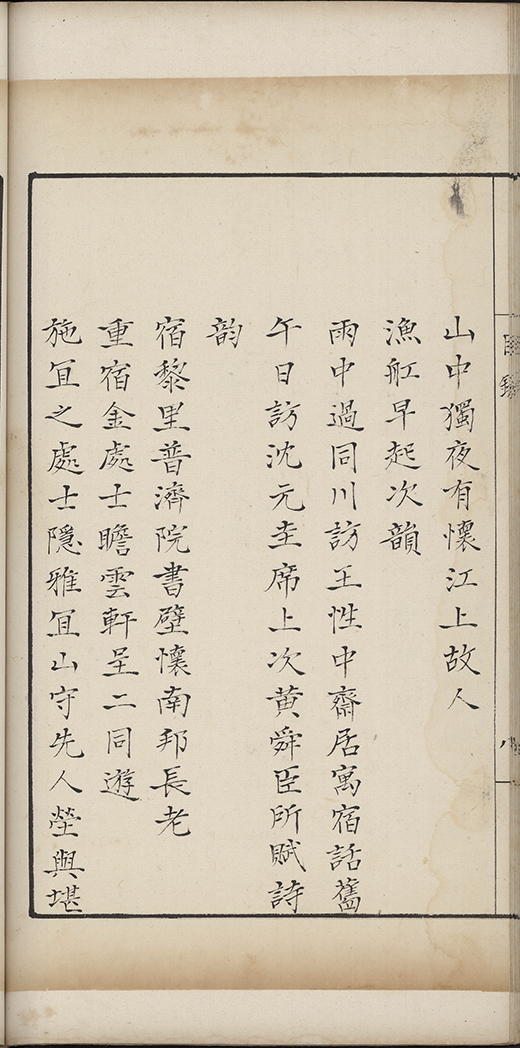 目錄
八
山中獨夜有懷江上故人
漁舡早起次韻
雨中過同川訪王性中齋居寓宿話舊
午日訪沈元圭席上次黄舜臣所賦詩
韵
宿黎里普濟院書壁懷南邦長老
重宿金處士瞻雲軒呈二同遊
施冝之處士隱雅冝山守先人塋與堪